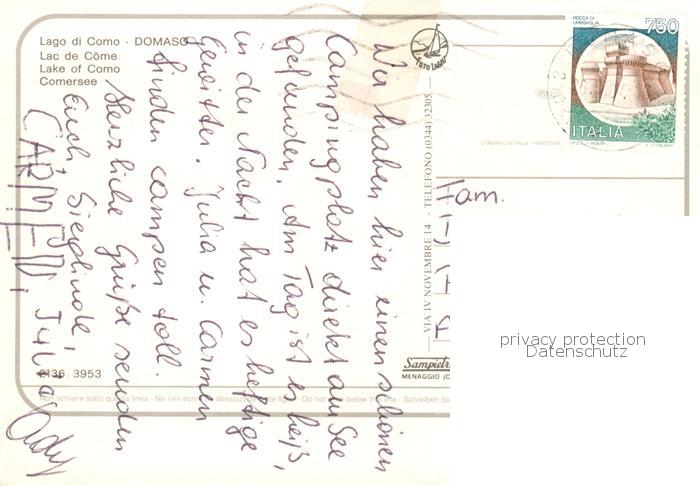 Lago di Como - DOMASO
Lac de Côme
Lake of Como
Comersee
FOTO LAGO
ROCCA DI
URBISAGLIA
750
ITALIA
Wir haben hier einen schönen
Campingplatz direkt am See
gefunden. Am Tag ist es heiß,
in der Nacht hat es heftige
Gewitter. Julia u. Carmen
finden campen toll.
Herzliche Grüße senden
Euch, Sieglinde,
CARMEN, Julia
Fam.
VIA IV NOVEMBRE 14 - TELEFONO (0344) 32305
Sampietro
MENAGGIO (C
2136 3953
Non scrivere sotto questa linea - Ne rien écrire au dessous de cette li - Do not write below this line - Schreiben Sie
privacy protection
Datenschutz